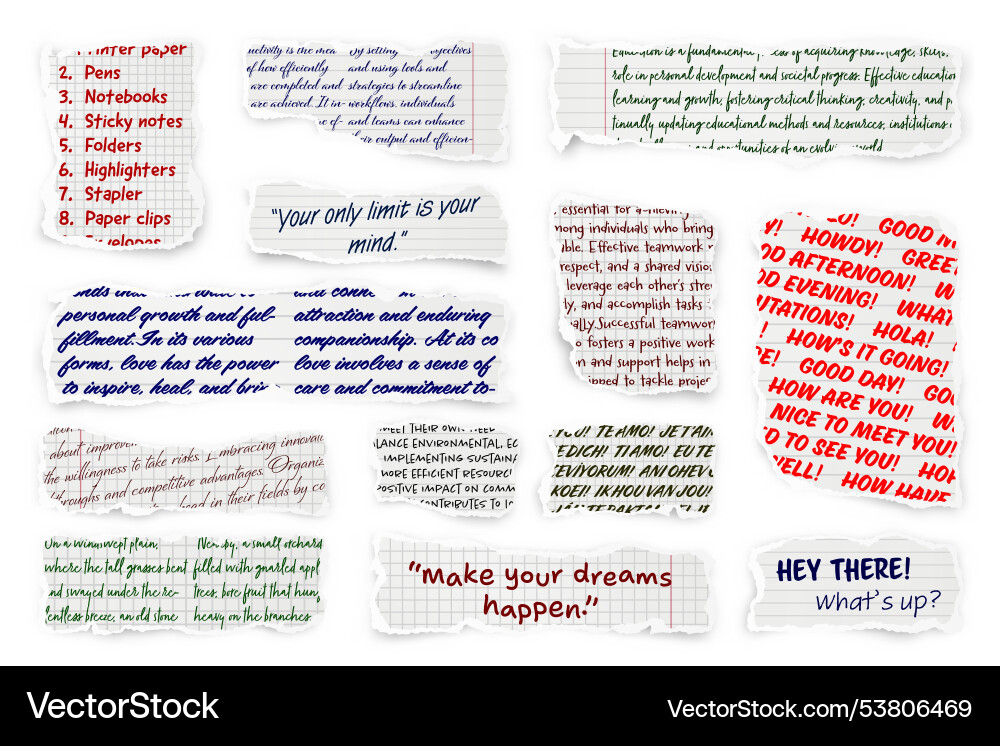 Printer paper
2. Pens
3. Notebooks
4. Sticky notes
5. Folders
6. Highlighters
7. Stapler
8. Paper clips
Envelopes
uctivity is the mea
of how efficiently
are completed and
are achieved. It in-
by setting
and using tools and
strategies to streamline
workflows, individuals
and teams can enhance
output and efficien-
is a fundamental
of acquiring
role in personal development and societal progress. Effective educatio
learning and growth, fostering critical thinking, creativity, and p
tinually updating educational methods and resources, institutions
of an evolving world
"Your only limit is your
mind."
essential for achieving
mong individuals who bring
ible. Effective teamwork r
respect, and a shared vision
leverage each other's stre
ly, and accomplish tasks
ally. Successful teamwor
o fosters a positive work
n and support helps in
ipped to tackle projec
GOOD M
Y! HOWDY! GREE
OD AFTERNOON! W
OD EVENING! WHAT
UTATIONS! HOLA!
! HOW'S IT GOING!
E! GOOD DAY! GO
HOW ARE YOU! W
NICE TO MEET YOU!
D TO SEE YOU! HO
WELL! HOW HAVE
personal growth and ful-
fillment. In its various
forms, love has the power
to inspire, heal, and
and conne
attraction and enduring
companionship. At its co
love involves a sense of
care and commitment to-
about improve
the willingness to take risks. Embracing innovati
throughs and competitive advantages. Organiz
in their fields by co
MEET THEIR OWN NEED
LANCE ENVIRONMENTAL, EC
IMPLEMENTING SUSTAINA
MORE EFFICIENT RESOURC
POSITIVE IMPACT ON COMM
CONTRIBUTES TO
YOU! TE AMO! JE T'AIM
EDICH! TI AMO! EU TE
SEVIYORUM! ANI OHEV
KOEI! IK HOU VAN JOU!
On a windswept plain,
where the tall grasses bent
and swayed under the re-
lentless breeze, an old stone
Nearby, a small orchard
filled with gnarled appl
trees, bore fruit that hun
heavy on the branches.
"Make your dreams
happen."
HEY THERE!
what's up?
VectorStock®
VectorStock.com/53806469